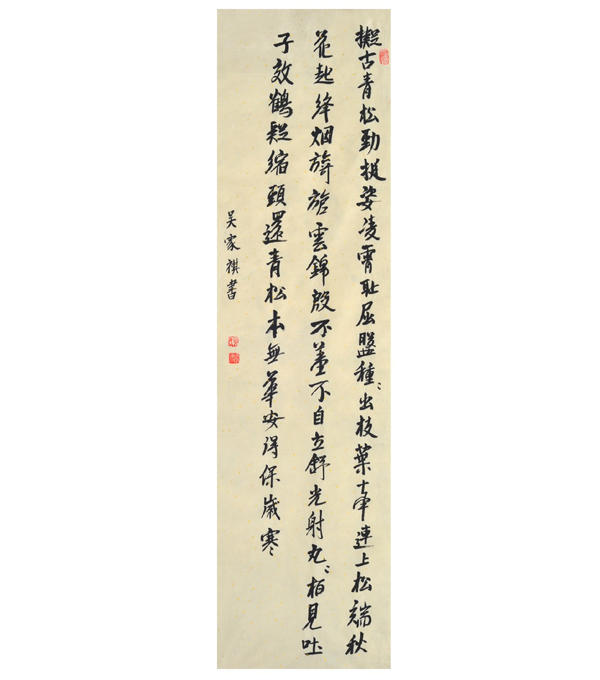 擬古青松勁挺姿凌霄耻屈盤種〻出枝葉牽連上松端秋
花起絳烟旖旎雲錦殷不羞不自立舒光射丸〻栢見吐
子效鶴疑縮頸還青松本無華安得保歲寒
吴家祺書